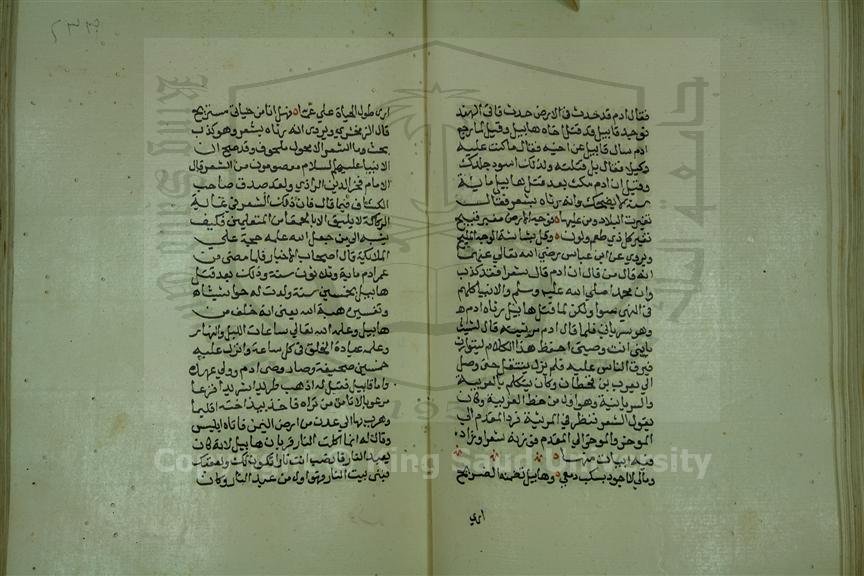 فقال ادم قد حدث في الارض حدث فاتى الهند
فوجد قابيل قد قتل اخاه هابيل وقيل لما رجع
ادم سال قابيل عن اخيه فقال ما كنت عليه
وكيلا فقال بل قتلته ولذلك اسود جلدك
وقيل ان ادم مكث بعد قتل هابيل ماية
سنة لا يضحك وانه رثاه بشعر فقال
تغيرت البلاد ومن عليها فوجه الارض مغبر قبيح
تغير كل ذي طعم ولون وقل بشاشة الوجه المليح
ويروي عن ابن عباس رضي الله تعالى عنهما
انه قال من قال ان ادم قال شعرا فقد كذب
وان محمدا صلى الله عليه وسلم والانبيا كلهم
في النهي سوا ولكن لما قتل هابيل رثاه ادم
وهو سرياني فلما قال ادم مرثيته قال لشيث
يابني انت وصيي احفظ هذا الكلام ليتوارث
فيرق الناس عليه فلم يزل ينتقل حتى وصل
الى يعرب بن قحطان وكان يتكلم بالعربية
والسريانية وهو اول من خط العربية وكان
يقول الشعر فنظر في المرثية فرد المقدم الى
الموخر والموخر الى المقدم فوزنه شعرا وزاد
فيه ابيات منها
ومالي لا اجود بسكب دمعي وهابيل تضمنه الضريح
ارى
ارى طول الحياة علي غما وهل انا من حياتي مستريح
قال الزمخشري ويروى انه رثاه بشعر وهو كذب
بحت وما الشعر الا منحول ملحون وقد صح ان
الانبيا عليهم السلام معصومون من الشعر قال
الامام فخر الدين الرازي ولقد صدق صاحب
الكشاف فيما قال فان ذلك الشعر في غاية
الركاكة لا يليق الا بالحمقا من المتعلمين فكيف
ينسب الى من جعل الله علمه حجة على
الملائكة قال اصحاب الاخبار فلما مضى من
عمر ادم ماية وثلاثون سنة وذلك بعد قتل
هابيل بخمسين سنة ولدت له حوا شيثا
وتفسيره هبة الله يعني انه خلف من
هابيل وعلمه الله تعالى ساعات الليل والنهار
وعلمه عبادة الخلق في كل ساعة وانزل عليه
خمسين صحيفة وصار وصي ادم وولي عهده
واما قابيل فقيل له اذهب طريدا شريدا فزعا
مرعوبا لا تامن من تراه فاخذ بيد اخته اقليما
وهرب بها الى عدن من ارض اليمن فاتاه ابليس
وقال له انما اكلت النار قربان هابيل لانه كان
يعبد النار فانصب انت نارا تكون لك ولعقبك
فبنى بيت النار وهو اول من عبد النار وكان
Copyright © King Saud University
1957